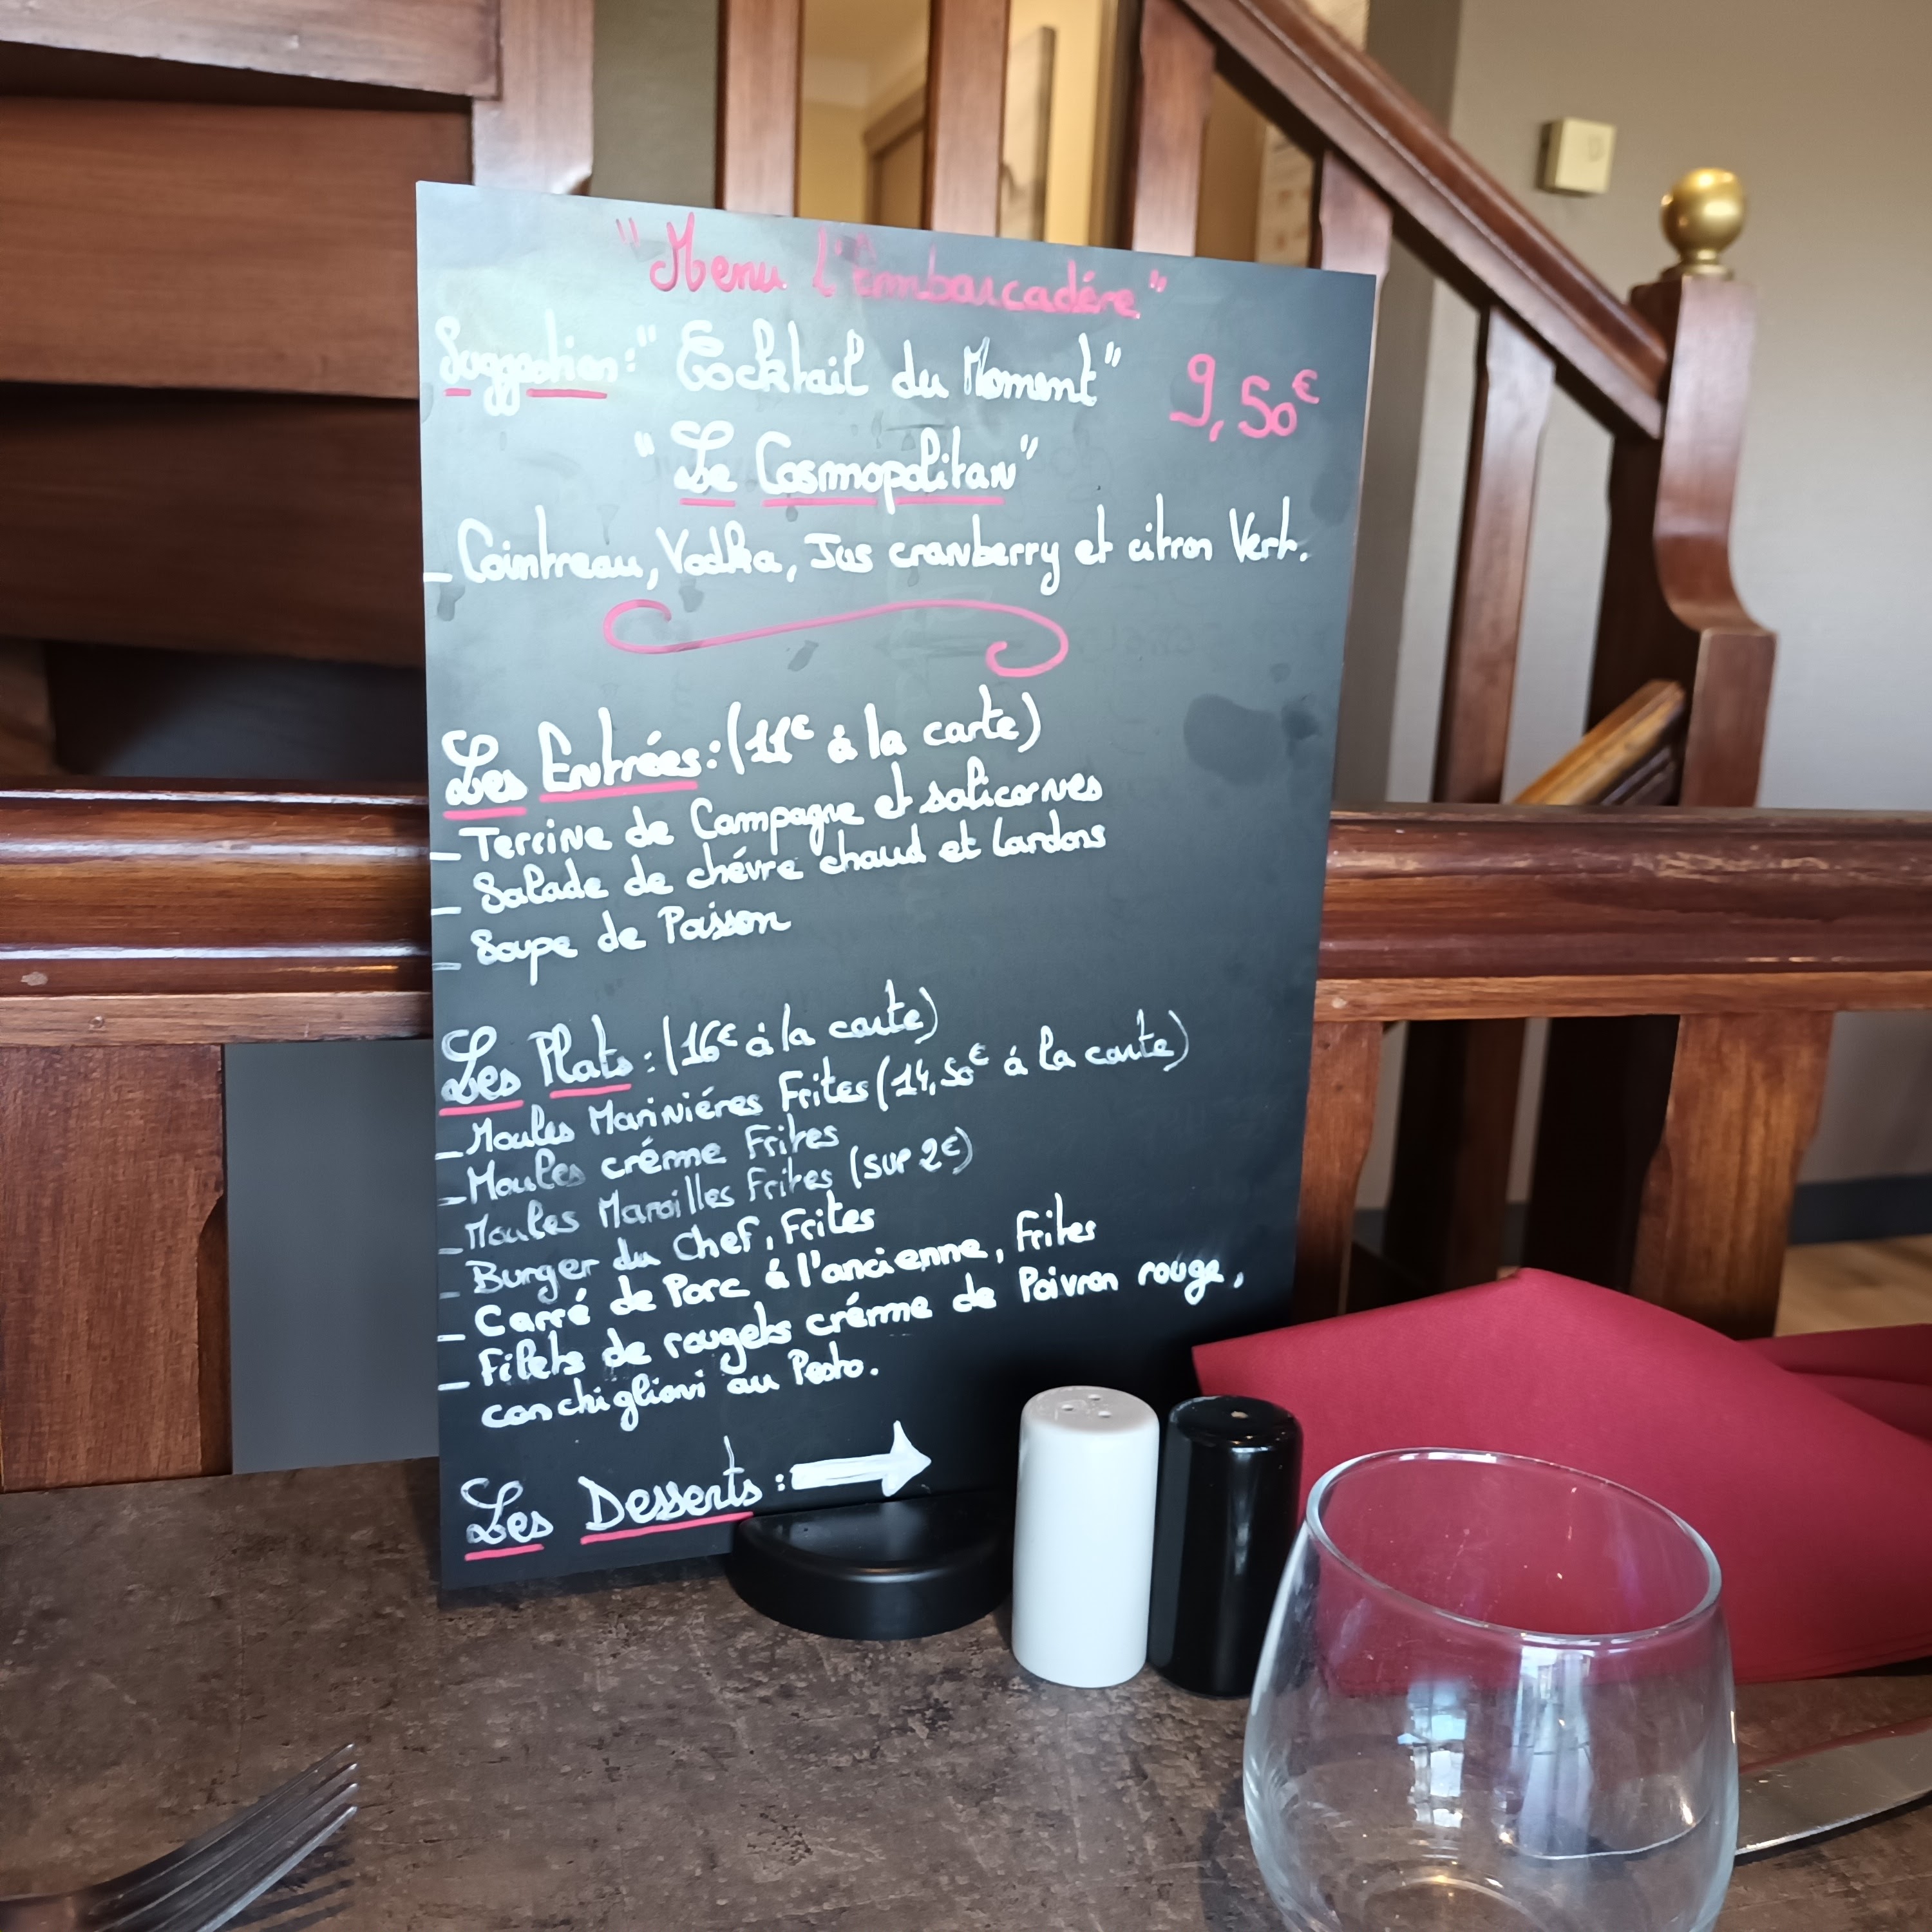 "Menu l'Embarcadére"
Suggestion: " Cocktail du Moment" 9,50€
"Le Cosmopolitan"
- Cointreau, Vodka, Jus cranberry et citron Vert.
Les Entrées: (11€ à la carte)
- Terrine de Campagne et salicornes
- Salade de chévre chaud et lardons
- Soupe de Poisson
Les Plats: (16€ à la carte)
- Moules Mariniéres Frites (14,50€ à la carte)
- Moules créme Frites
- Moules Maroilles Frites (sup 2€)
- Burger du Chef, Frites
- Carré de Porc à l'ancienne, Frites
- Filets de rougets créme de Poivron rouge,
conchiglioni au Pesto.
Les Desserts: →